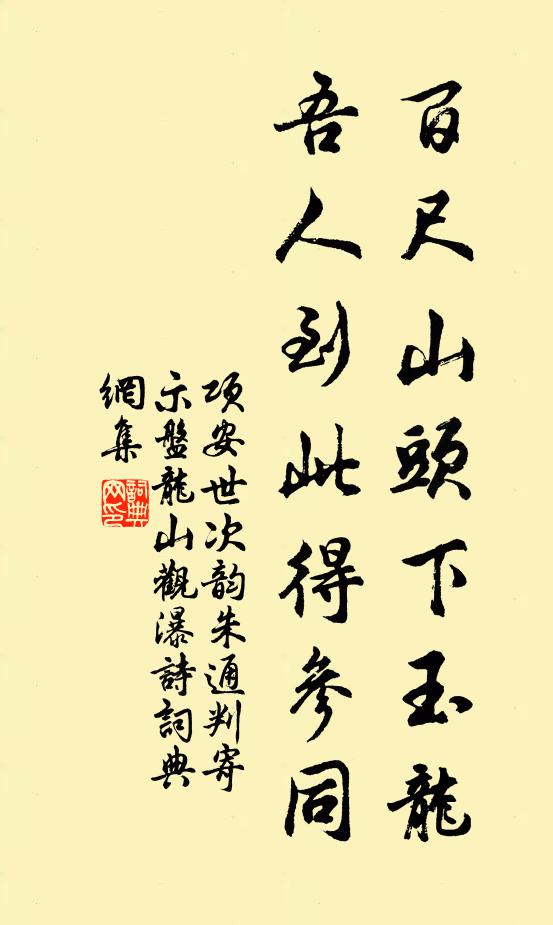 百尺山頭下玉龍
吾人到此得參同
項安世次韵朱通判寄
示盤龍山觀瀑詩詞典
網集
詞典
网印